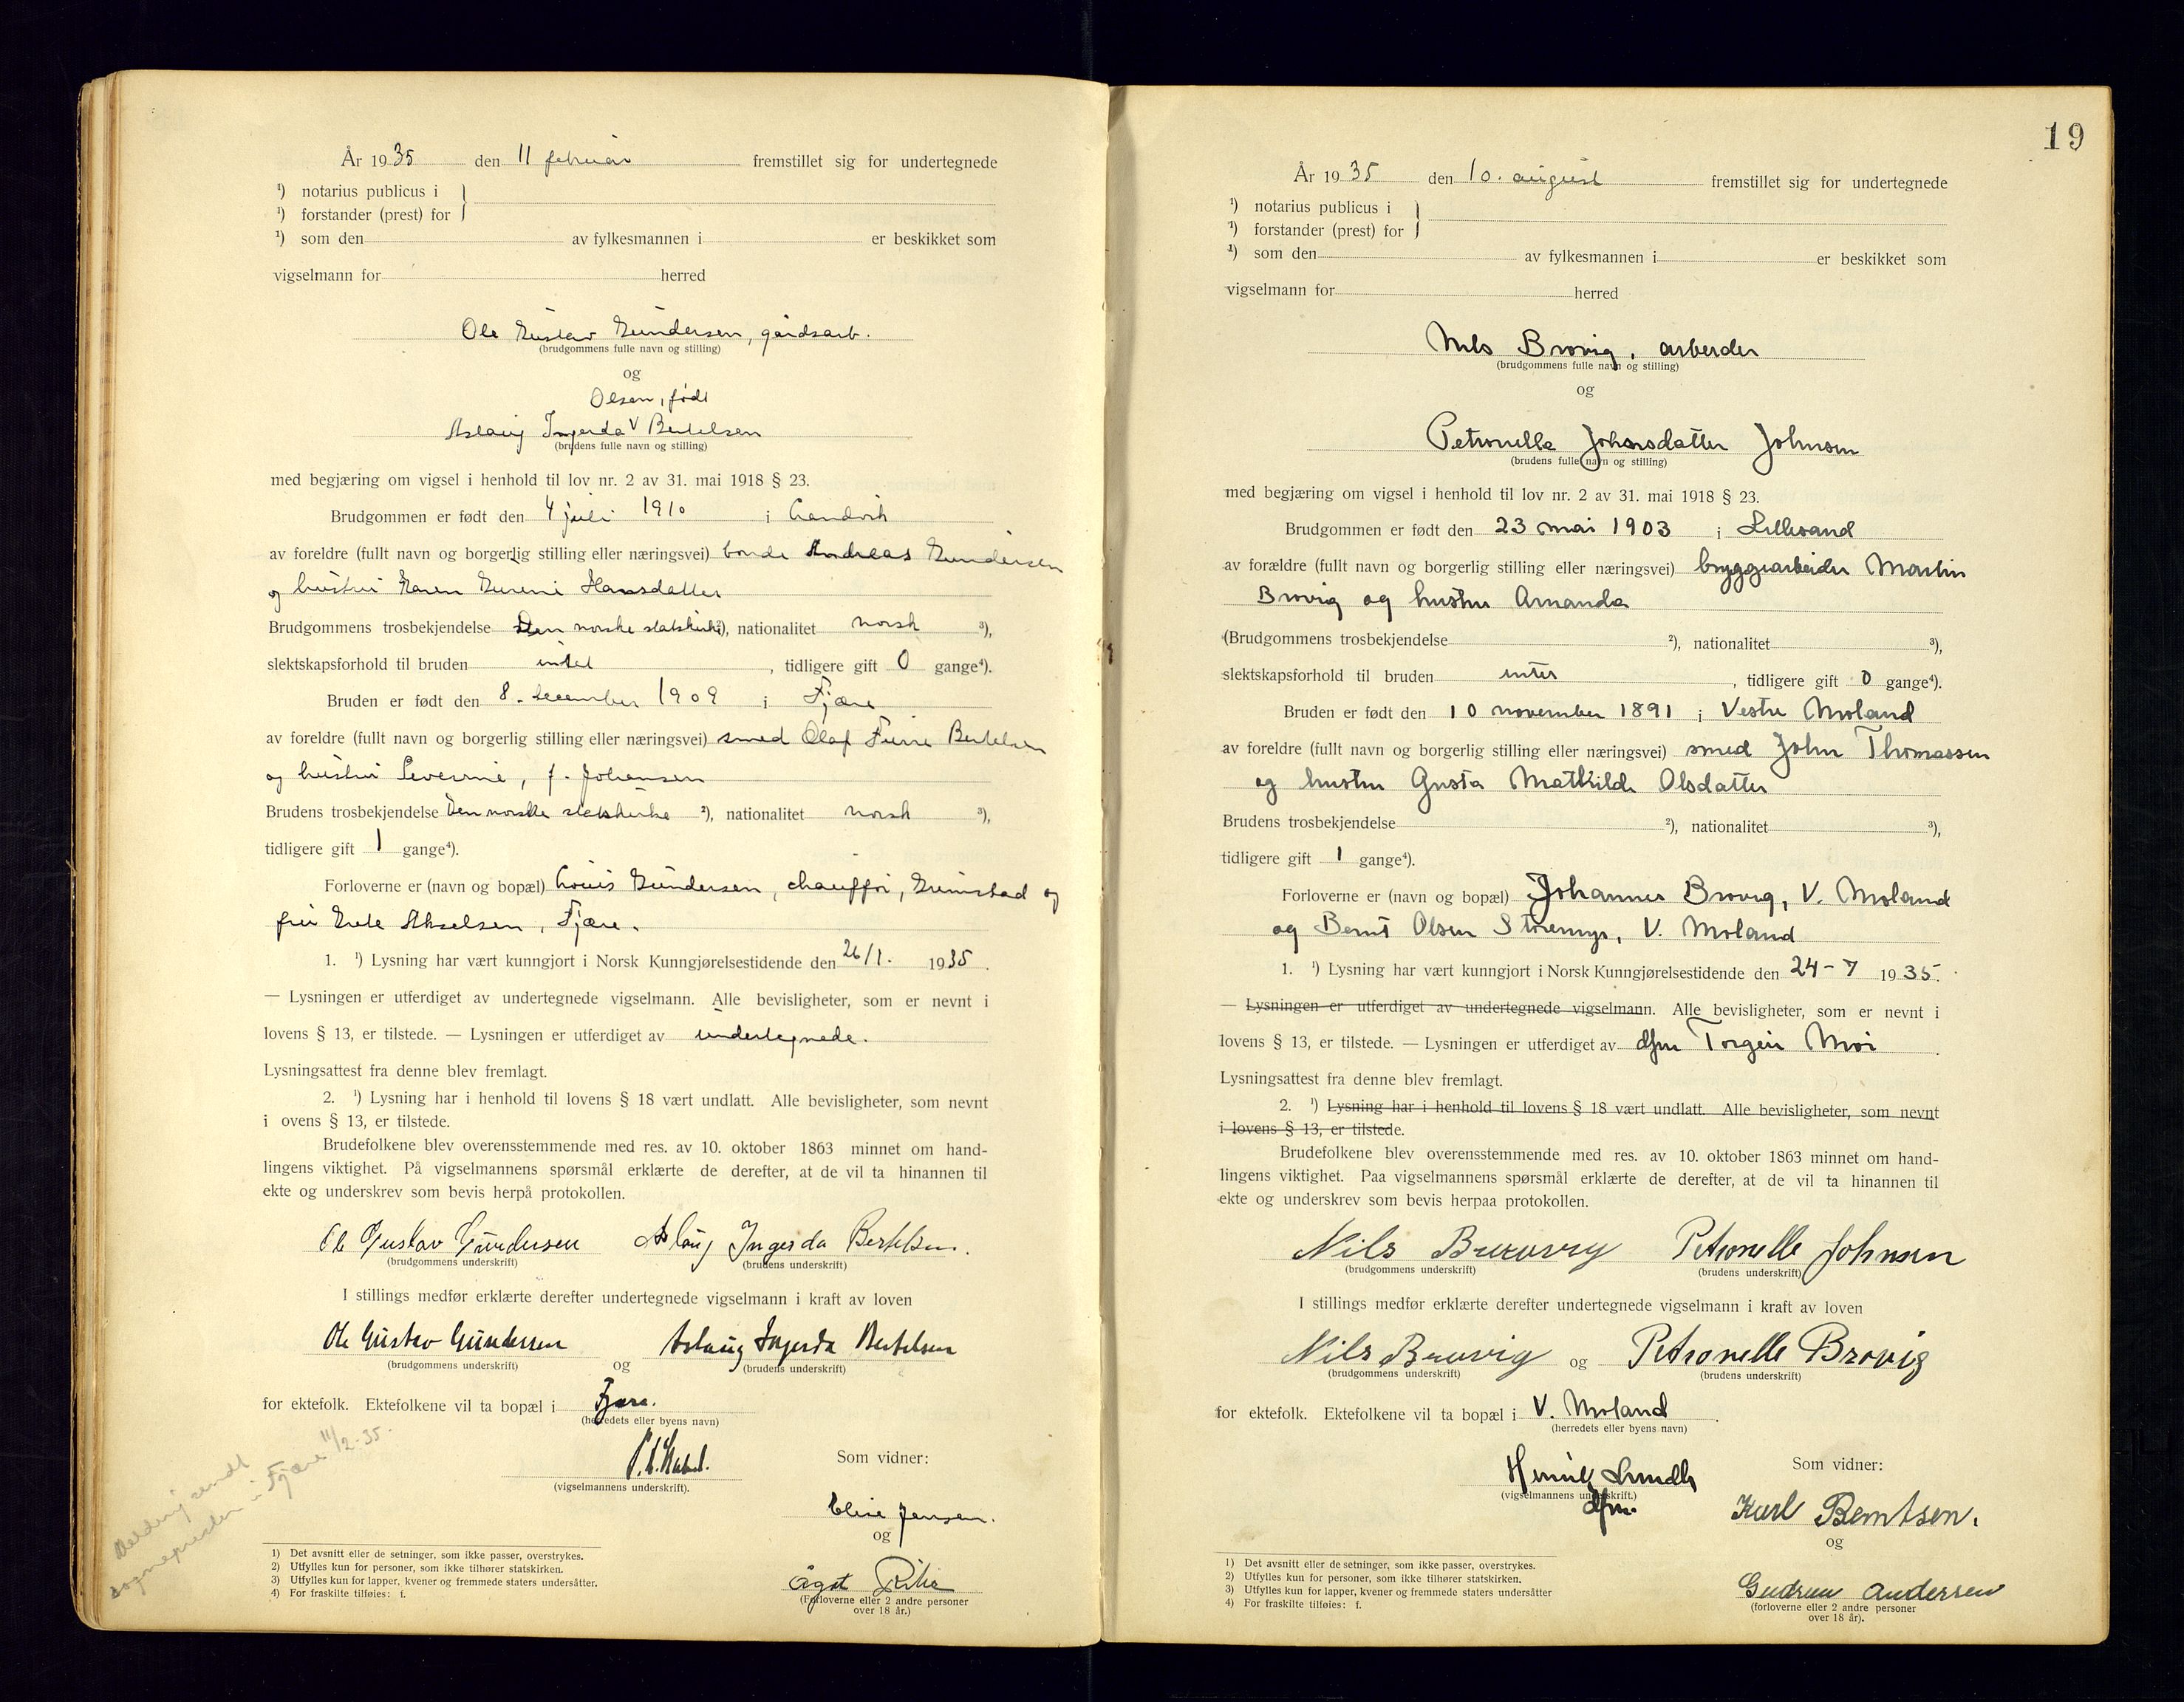 År 1935 den 11 februar fremstillet sig for undertegnede
¹) notarius publicus i }
¹) forstander (prest) for }
¹) som den av fylkesmannen i er beskikket som
vigselmann for herred
Ole Gustav Gundersen, gårdsarb.
(brudgommens fulle navn og stilling)
og
Olsen, født
Aslaug Ingerda V Bertelsen
(brudens fulle navn og stilling)
med begjæring om vigsel i henhold til lov nr. 2 av 31. mai 1918 § 23.
Brudgommen er født den 4 juli 1910 i Landvik
av foreldre (fullt navn og borgerlig stilling eller næringsvei) bonde Andreas Gundersen
og hustru Karen Gurine Hansdatter
Brudgommens trosbekjendelse Den norske statskirke ²), nationalitet norsk ³),
slektskapsforhold til bruden intet, tidligere gift 0 gange⁴).
Bruden er født den 8. december 1909 i Fjære
av foreldre (fullt navn og borgerlig stilling eller næringsvei) smed Olaf Bertelsen
og hustru Severine, f. Johansen
Brudens trosbekjendelse Den norske statskirke ²), nationalitet norsk ³),
tidligere gift 1 gange⁴).
Forloverne er (navn og bopæl) Louis Gundersen, chauffør, Grimstad og
fru Grete Akselsen, Fjære.
1. ¹) Lysning har vært kunngjort i Norsk Kunngjørelsestidende den 26/1. 1935.
— Lysningen er utferdiget av undertegnede vigselmann. Alle bevisligheter, som er nevnt i
lovens § 13, er tilstede. — Lysningen er utferdiget av undertegnede.
Lysningsattest fra denne blev fremlagt.
2. ¹) Lysning har i henhold til lovens § 18 vært undlatt. Alle bevisligheter, som nevnt
i ovens § 13, er tilstede.
Brudefolkene blev overensstemmende med res. av 10. oktober 1863 minnet om hand-
lingens viktighet. På vigselmannens spørsmål erklærte de derefter, at de vil ta hinannen til
ekte og underskrev som bevis herpå protokollen.
Ole Gustav Gundersen Aslaug Ingerda Bertelsen.
(brudgommens underskrift) (brudens underskrift)
I stillings medfør erklærte derefter undertegnede vigselmann i kraft av loven
Ole Gustav Gundersen og Aslaug Ingerda Bertelsen
(brudgommens underskrift) (brudens underskrift)
for ektefolk. Ektefolkene vil ta bopæl i Fjære.
(herredets eller byens navn)
(vigselmannens underskrift).
Som vidner:
Elise Jensen.
og
Ågot
(Forloverne eller 2 andre personer
over 18 år.)
Melding sendt
sognepresten i Fjære 11/2-35.
1) Det avsnitt eller de setninger, som ikke passer, overstrykes.
2) Utfylles kun for personer, som ikke tilhører statskirken.
3) Utfylles kun for lapper, kvener og fremmede staters undersåtter.
4) For fraskilte tilføies: f.
19
År 1935 den 10. august fremstillet sig for undertegnede
¹) notarius publicus i }
¹) forstander (prest) for }
¹) som den av fylkesmannen i er beskikket som
vigselmann for herred
Nils Brovig, arbeider
(brudgommens fulle navn og stilling)
og
Petronelle Johnsdatter Johnsen
(brudens fulle navn og stilling)
med begjæring om vigsel i henhold til lov nr. 2 av 31. mai 1918 § 23.
Brudgommen er født den 23 mai 1903 i Lillesand
av forældre (fullt navn og borgerlig stilling eller næringsvei) bryggearbeider Martin
Brovig og hustru Amanda
(Brudgommens trosbekjendelse ²), nationalitet ³),
slektskapsforhold til bruden intet, tidligere gift 0 gange⁴).
Bruden er født den 10 november 1891 i Vestre Moland
av foreldre (fullt navn og borgerlig stilling eller næringsvei) smed John Thomassen
og hustru Gusta Mathilde Olsdatter
Brudens trosbekjendelse ²), nationalitet ³),
tidligere gift 1 gange⁴).
Forloverne er (navn og bopæl) Johannes Brovig, V. Moland
og Bernt Olsen Storemyr, V. Moland
1. ¹) Lysning har vært kunngjort i Norsk Kunngjørelsestidende den 24-7 1935.
— Lysningen er utferdiget av undertegnede vigselmann. Alle bevisligheter, som er nevnt i
lovens § 13, er tilstede. — Lysningen er utferdiget av dfm Torgeir Moi
Lysningsattest fra denne blev fremlagt.
2. ¹) Lysning har i henhold til lovens § 18 vært undlatt. Alle bevisligheter, som nevnt
i lovens § 13, er tilstede.
Brudefolkene blev overensstemmende med res. av 10. oktober 1863 minnet om hand-
lingens viktighet. Paa vigselmannens spørsmål erklærte de derefter, at de vil ta hinannen til
ekte og underskrev som bevis herpaa protokollen.
Nils Petronelle Johnsen
(brudgommens underskrift) (brudens underskrift)
I stillings medfør erklærte derefter undertegnede vigselmann i kraft av loven
Nils Brovig og Petronelle Brovig
(brudgommens underskrift) (brudens underskrift)
for ektefolk. Ektefolkene vil ta bopæl i V. Moland.
(herredets eller byens navn)
Henrik
(vigselmannens underskrift.)
dfm.
Som vidner:
Karl Berntsen.
og
Gudrun Andersen
(forloverne eller 2 andre personer
over 18 år).
1) Det avsnitt eller de setninger, som ikke passer, overstrykes.
2) Utfylles kun for personer, som ikke tilhører statskirken.
3) Utfylles kun for lapper, kvener og fremmede staters undersåtter
4) For fraskilte tilføies: f.